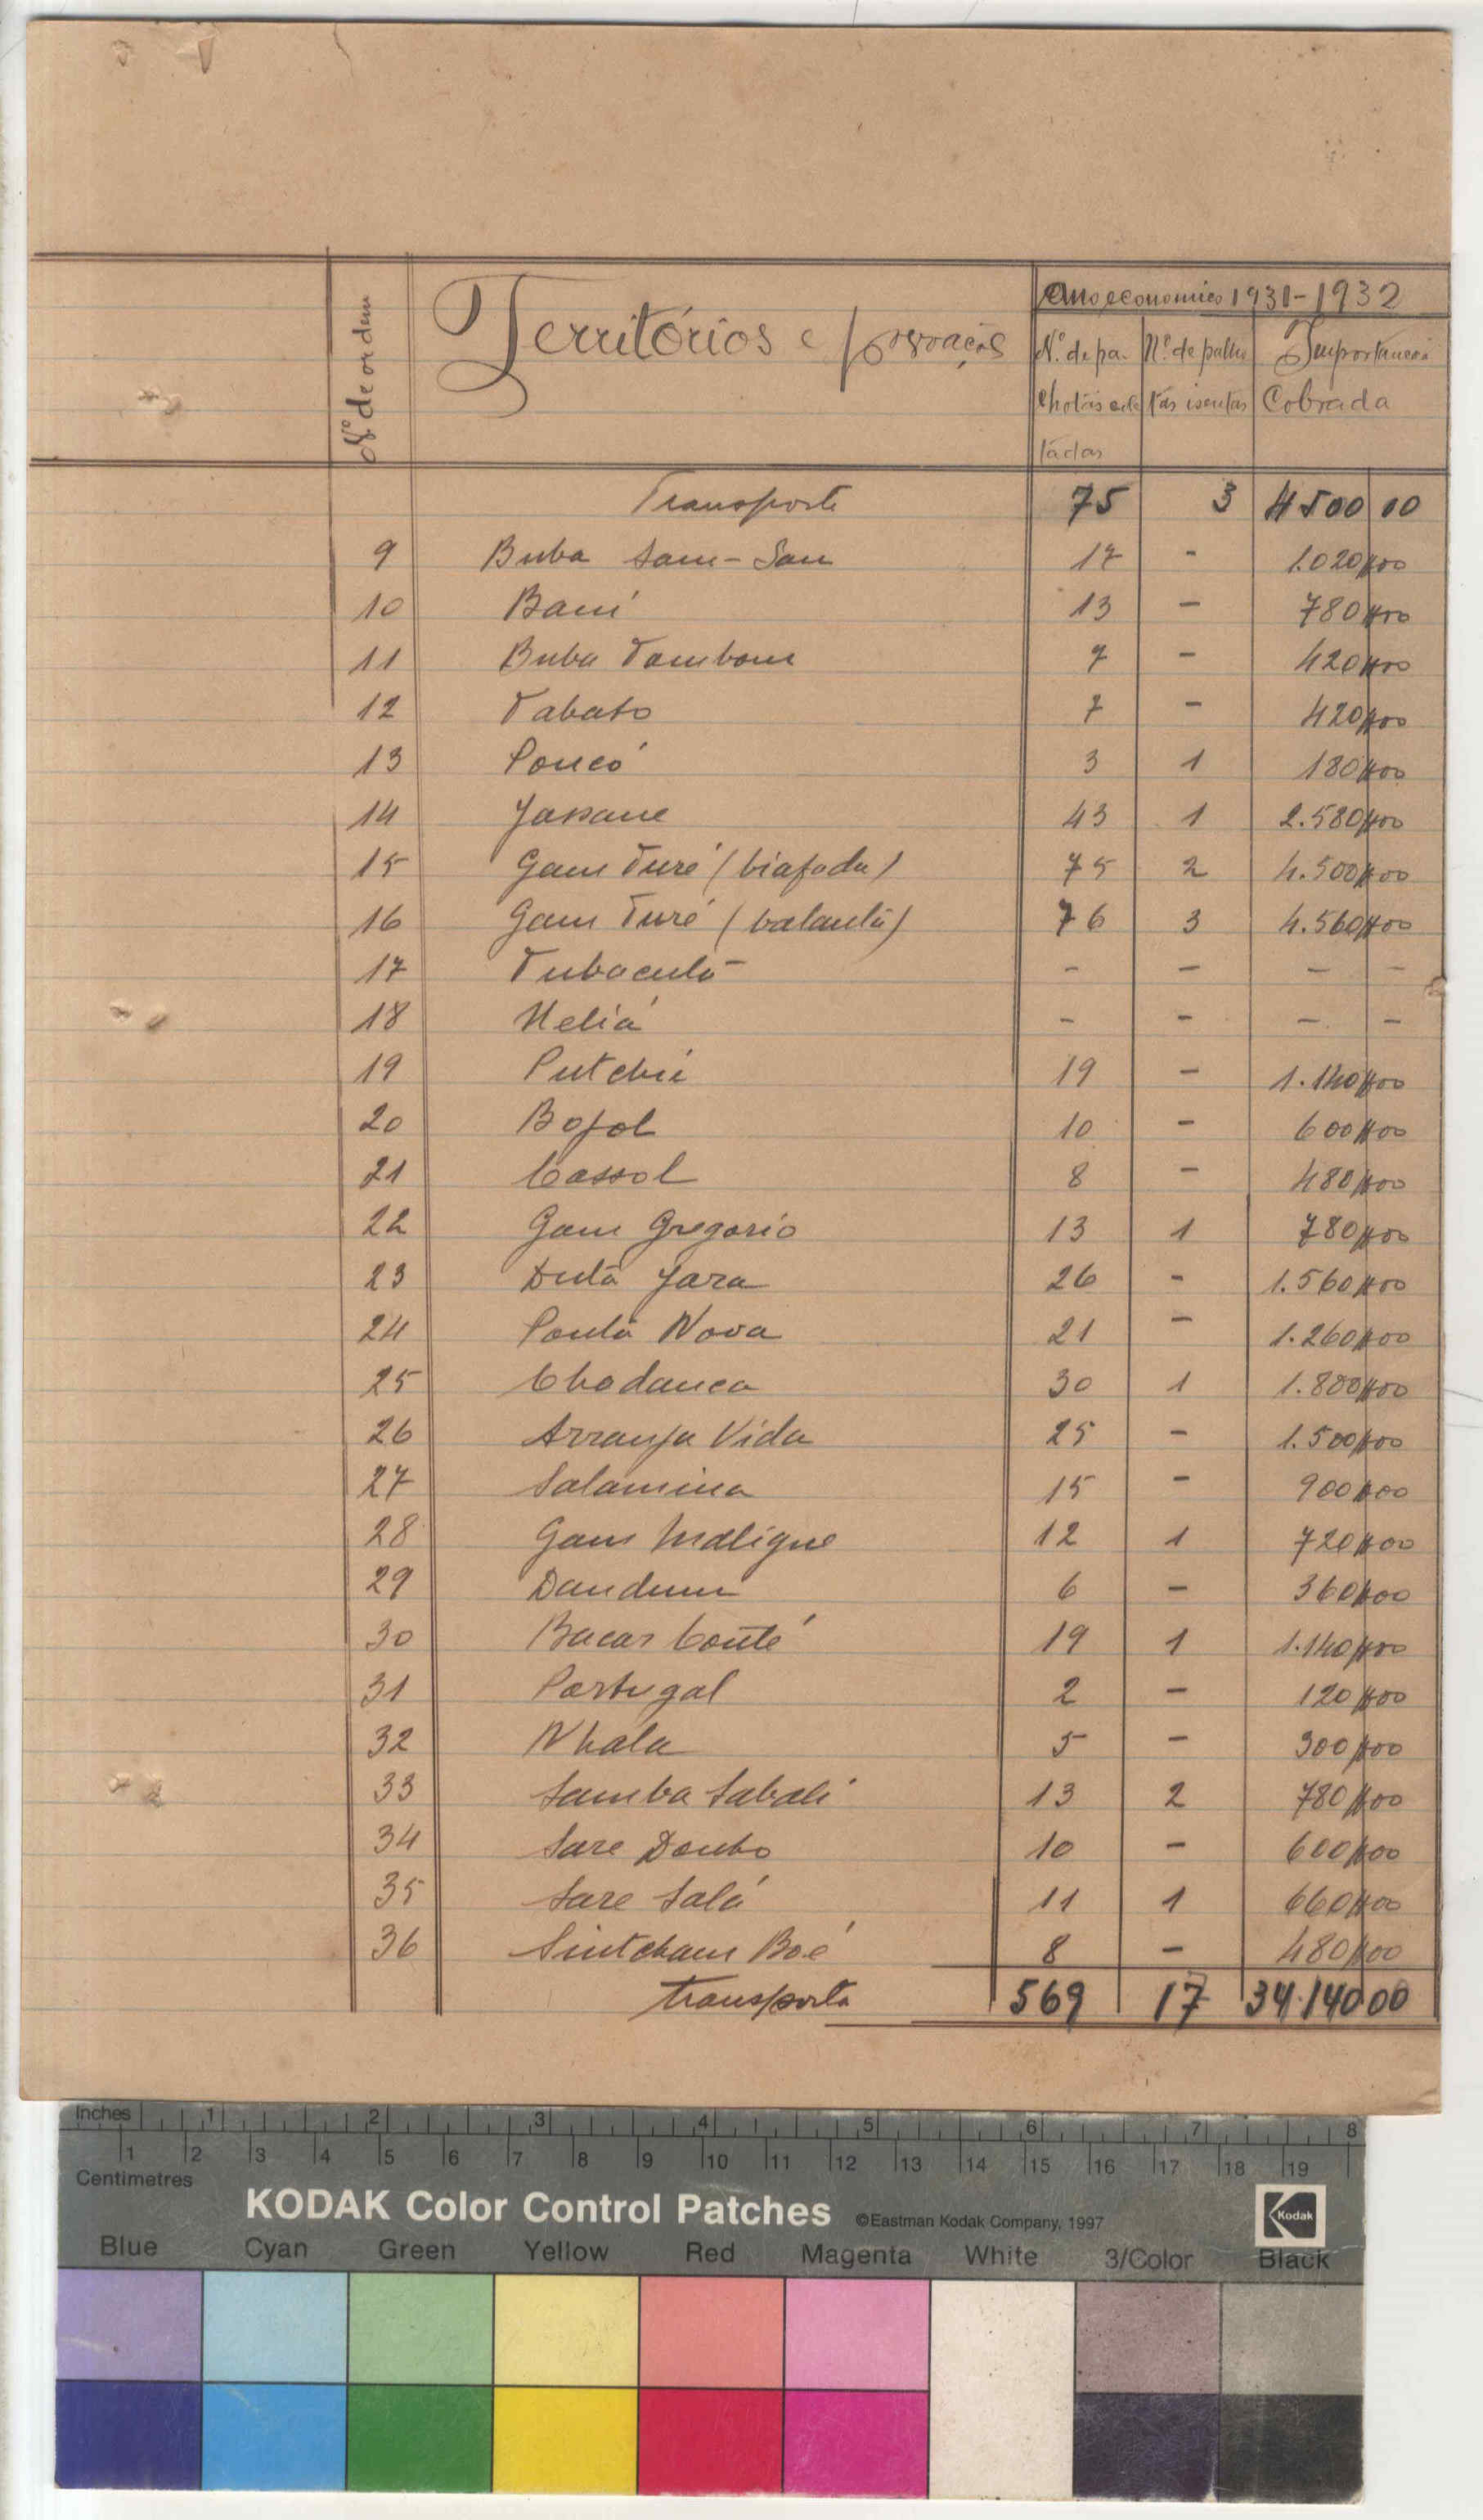 Nº de ordem
Territórios e povoações
Ano economico 1931-1932
Nº de pa-
lhotas colec
tadas
Nº de palho
tas isentas
Importancia
Cobrada
Transporte 75 3 4500 00
9 Buba Sam-San 17 - 1.020$00
10 Bani 13 - 780$00
11 Buba Tombom 7 - 420$00
12 Tabato 7 - 420$00
13 Poncó 3 1 180$00
14 Jassane 43 1 2.580$00
15 Gam Turé (biafada) 75 2 4.500$00
16 Gam Turé (balanta) 76 3 4.560$00
17 Tubacutá - - - -
18 Neliá - - - -
19 Putchi 19 - 1.140$00
20 Bofol 10 - 600$00
21 Cassol 8 - 480$00
22 Gam Gregorio 13 1 780$00
23 Dutá Jara 26 - 1.560$00
24 Ponta Nova 21 - 1.260$00
25 Chodanca 30 1 1.800$00
26 Arranja Vida 25 - 1.500$00
27 Salamina 15 - 900$00
28 Gam Maligue 12 1 720$00
29 Dandum 6 - 360$00
30 Bacar Conté 19 1 1.140$00
31 Portugal 2 - 120$00
32 Nhala 5 - 300$00
33 Samba Sabali 13 2 780$00
34 Sare Donho 10 - 600$00
35 Sare Salá 11 1 660$00
36 Sintcham Boé 8 - 480$00
transporta 569 17 34.140 00
Inches 1 2 3 4 5 6 7 8
1 2 3 4 5 6 7 8 9 10 11 12 13 14 15 16 17 18 19
Centimetres
KODAK Color Control Patches ©Eastman Kodak Company, 1997 Kodak
Blue Cyan Green Yellow Red Magenta White 3/Color Black